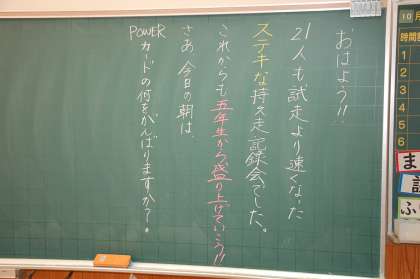 おはよう!!
21人も試走より速くなった
ステキな持久走記録会でした。
これからも五年生から盛り上げていこう!!
さあ、今日の朝は、
POWERカードの何をがんばりますか?。
10月
時間割
1
2
3
4
5
6
ま
話
ふ